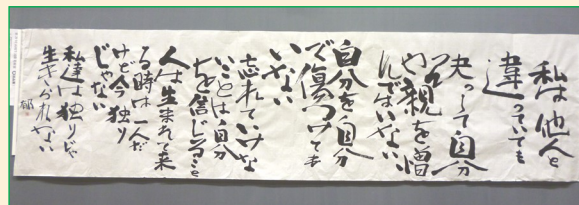 私は他人と
違っていても
決して自分
や親を憎
んではいない
自分を自分
で傷つけても
いない
忘れていけな
いことは自分
を信じること
人は生まれて来
る時は一人だ
けど今独り
じゃない
私達は独りじゃ
生きられない
郁